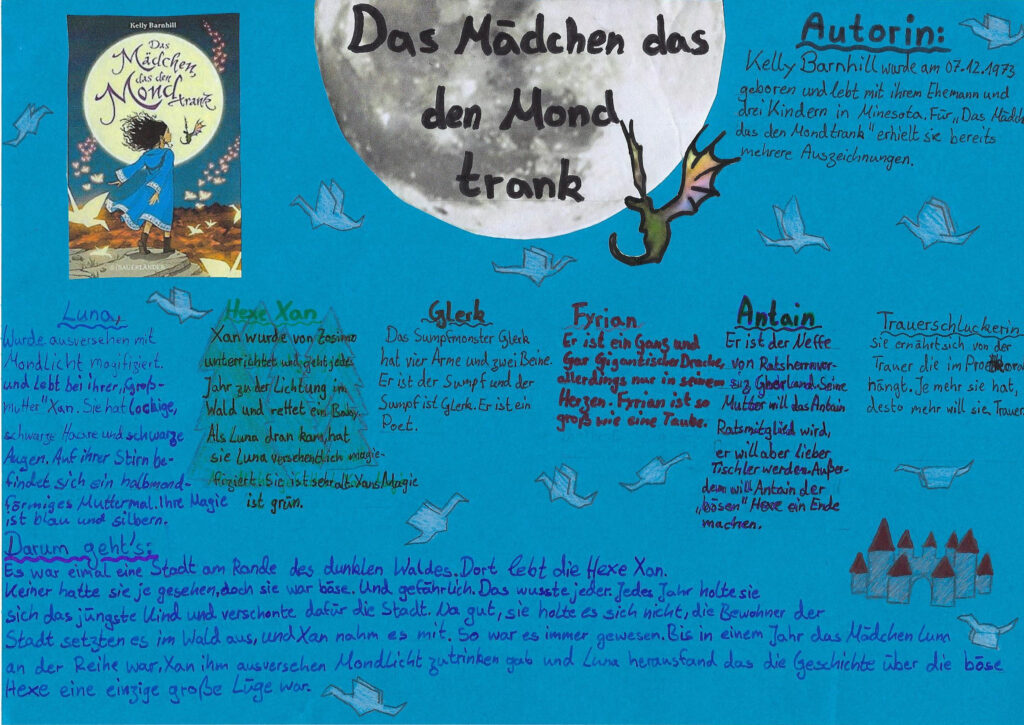 Kelly Barnhill
Das
Mädchen,
das den
Mond
trank
SAUERLÄNDER
Das Mädchen das
den Mond
trank
Autorin:
Kelly Barnhill wurde am 07.12.1973
geboren und lebt mit ihrem Ehemann und
drei Kindern in Minesota. Für „Das Mädch
das den Mond trank" erhielt sie bereits
mehrere Auszeichnungen.
Luna
Wurde ausversehen mit
Mondlicht magifiziert.
und lebt bei ihrer „Groß-
mutter" Xan. Sie hat lockige,
schwarze Haare und schwarze
Augen. Auf ihrer Stirn be-
findet sich ein halbmond-
förmiges Muttermal. Ihre Magie
ist blau und silbern.
Hexe Xan
Xan wurde von Zosimo
unterrichtet und geht jedes
Jahr zu der Lichtung im
Wald und rettet ein Baby.
Als Luna dran kam, hat
sie Luna versehentlich magie-
fiziert. Sie ist sehr alt. Xans Magie
ist grün.
Glerk
Das Sumpfmonster Glerk
hat vier Arme und zwei Beine.
Er ist der Sumpf und der
Sumpf ist Glerk. Er ist ein
Poet.
Fyrian
Er ist ein Ganz und
Gar Gigantischer Drache,
allerdings nur in seinem
Herzen. Fyrian ist so
groß wie eine Taube.
Antain
Er ist der Neffe
von Ratsherrnvor-
siz Gherland. Seine
Mutter will das Antain
Ratsmitglied wird,
er will aber lieber
Tischler werden. Außer-
dem will Antain der
„bösen" Hexe ein Ende
machen.
Trauerschluckerin
sie ernährt sich von der
Trauer die im
hängt. Je mehr sie hat,
desto mehr will sie. Trauer
Darum geht's:
Es war eimal eine Stadt am Rande des dunklen Waldes. Dort lebt die Hexe Xan.
Keiner hatte sie je gesehen, doch sie war böse. Und gefährlich. Das wusste jeder. Jedes Jahr holte sie
sich das jüngste Kind und verschonte dafür die Stadt. Na gut, sie holte es sich nicht, die Bewohner der
Stadt setzten es im Wald aus, und Xan nahm es mit. So war es immer gewesen. Bis in einem Jahr das Mädchen Luna
an der Reihe war, Xan ihm ausversehen Mondlicht zutrinken gab und Luna herausfand das die Geschichte über die böse
Hexe eine einzige große Lüge war.